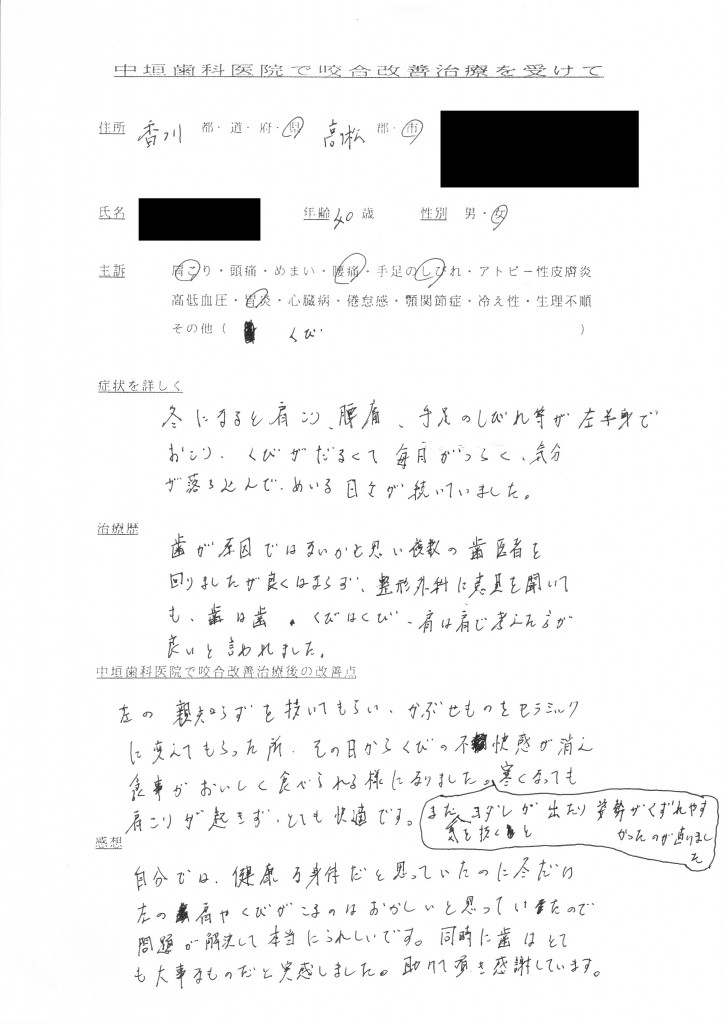 中垣歯科医院で咬合改善治療を受けて
住所 香川 都・道・府・県 高松 郡・市
氏名 年齢 40 歳 性別 男・女
主訴 肩こり・頭痛・めまい・腰痛・手足のしびれ・アトピー性皮膚炎
高低血圧・胃炎・心臓病・倦怠感・顎関節症・冷え性・生理不順
その他( くび )
症状を詳しく
冬になると肩こり、腰痛、手足のしびれ等が左半身で
おこり、くびがだるくて毎日がつらく、気分
が落ち込んで、めいる日々が続いていました。
治療歴
歯が原因ではないかと思い複数の歯医者を
回りましたが良くはならず、整形外科に意見を聞いて
も、歯は歯、くびはくび、肩は肩で考えた方が
良いと言われました。
中垣歯科医院で咬合改善治療後の改善点
左の親知らずを抜いてもらい、かぶせものをセラミック
に変えてもらった所、その日からくびの不快感が消え
食事がおいしく食べられる様になりました。寒くなっても
肩こりが起きず、とても快適です。
また、ヨダレが出たり姿勢がくずれやす
気を抜くと かったのが直りまし
た
感想
自分では、健康な身体だと思っていたのに冬だけ
左の肩やくびがこるのはおかしいと思っていたので
問題が解決して本当にうれしいです。同時に歯はとて
も大事なものだと実感しました。助けて頂き感謝しています。